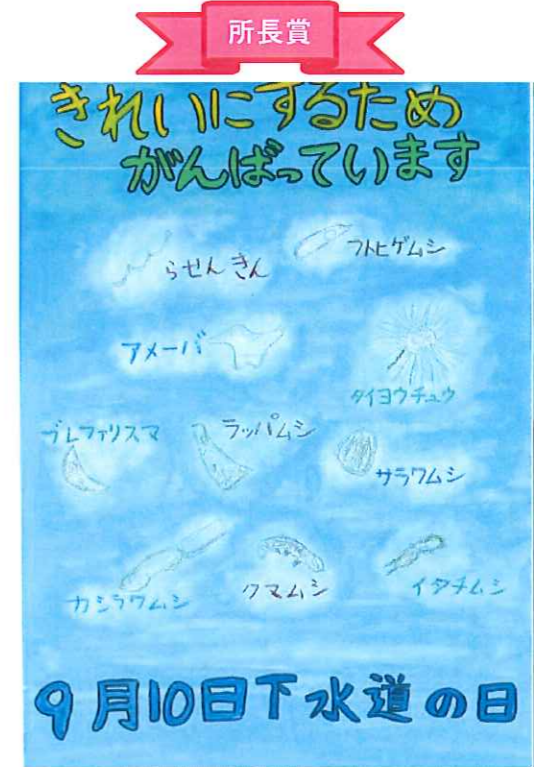 所長賞
きれいにするため
がんばっています
らせんきん
フトヒゲムシ
アメーバ
タイヨウチュウ
ブレファリスマ
ラッパムシ
サラワムシ
カシラワムシ
クマムシ
イタチムシ
9月10日下水道の日